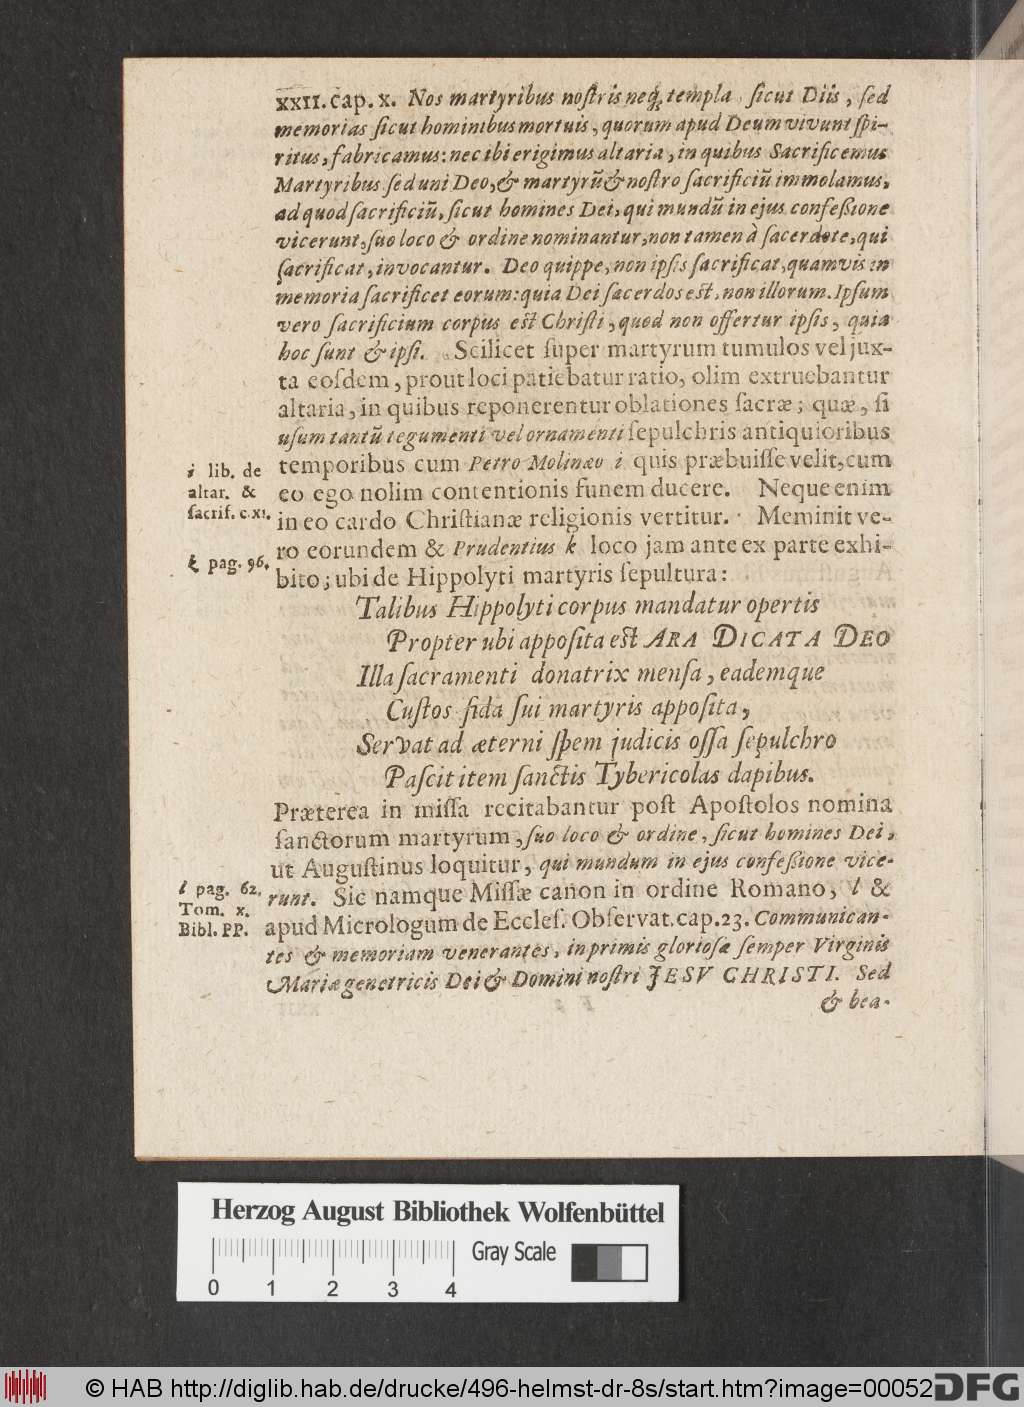 xxII. cap. x. Nos martyribus noſtris neq; templa, ſicut Diis, ſed
memorias ſicut hominibus mortuis, quorum apud Deum vivunt ſpi-
ritus, fabricamus: nec ibi erigimus altaria, in quibus Sacrificemus
Martyribus ſed uni Deo, & martyrũ & noſtro ſacrificiũ immolamus,
ad quod ſacrificiũ, ſicut homines Dei, qui mundũ in ejus confeßione
vicerunt, ſuo loco & ordine nominantur, non tamen à ſacerdote, qui
ſacrificat, invocantur. Deo quippe, non ipſis ſacrificat, quamvis in
memoria ſacrificet eorum: quia Dei ſacerdos eſt, non illorum. Ipſum
vero ſacrificium corpus eſt Chriſti, quod non offertur ipſis, quia
hoc ſunt & ipſi. Scilicet ſuper martyrum tumulos vel jux-
ta eoſdem, prout loci patiebatur ratio, olim extruebantur
altaria, in quibus reponerentur oblationes ſacræ; quæ, ſi
uſum tantũ tegumenti vel ornamenti ſepulchris antiquioribus
temporibus cum Petro Molinæo i quis præbuiſſe velit, cum
eo ego nolim contentionis funem ducere. Neque enim
in eo cardo Chriſtianæ religionis vertitur. Meminit ve-
ro eorundem & Prudentius k loco jam ante ex parte exhi-
bito; ubi de Hippolyti martyris ſepultura:
i lib. de
altar. &
ſacrif. c. xI.
k pag. 96.
Talibus Hippolyti corpus mandatur opertis
Propter ubi appoſita eſt ARA DICATA DEO
Illa ſacramenti donatrix menſa, eademque
Cuſtos fida ſui martyris appoſita,
Servat ad æterni ſpem judicis oſſa ſepulchro
Paſcit item ſanctis Tybericolas dapibus.
Præterea in miſſa recitabantur poſt Apoſtolos nomina
ſanctorum martyrum, ſuo loco & ordine, ſicut homines Dei,
ut Auguſtinus loquitur, qui mundum in ejus confeßione vice-
runt. Sic namque Miſſæ canon in ordine Romano, l &
apud Micrologum de Eccleſ. Obſervat. cap. 23. Communican-
tes & memoriam venerantes, inprimis glorioſæ ſemper Virginis
Mariæ genetricis Dei & Domini noſtri JESV CHRISTI. Sed
& bea-
l pag. 62.
Tom. x.
Bibl. PP.
Herzog August Bibliothek Wolfenbüttel
Gray Scale
0 1 2 3 4
© HAB http://diglib.hab.de/drucke/496-helmst-dr-8s/start.htm?image=00052
DFG